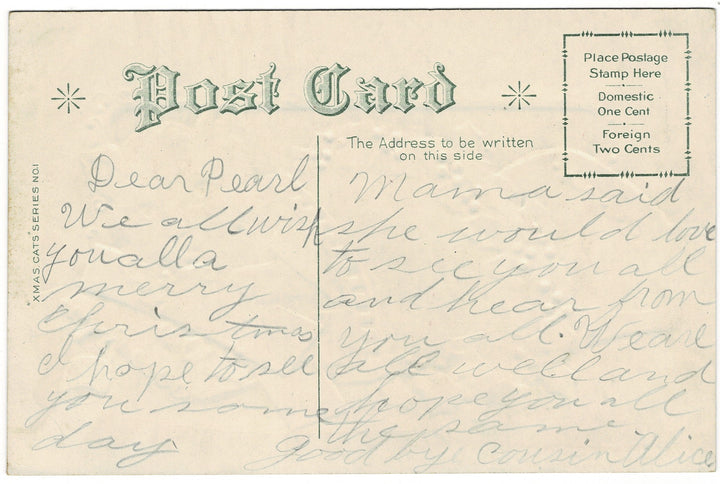 Post Card
Place Postage
Stamp Here
Domestic
One Cent
Foreign
Two Cents
The Address to be written
on this side
"XMAS CATS" SERIES NO.1
Dear Pearl
We all wish
you all a
merry
Christmas
I hope to see
you some
day
Mama said
she would love
to see you all
and hear from
you all. We are
all well and
hope you all
the same
good bye Cousin Alice